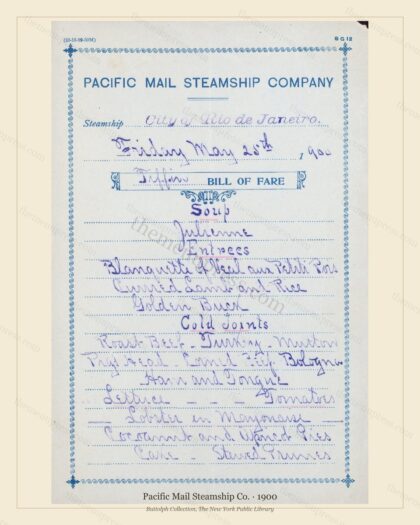 (12-15-99-50M) B G 12
PACIFIC MAIL STEAMSHIP COMPANY
Steamship City of Rio de Janeiro.
Friday May 25th 1900
Tiffin BILL OF FARE
Soup
Julienne
Entrees
Blanquette of Veal aux Petits Pois
Curried Lamb and Rice
Golden Buck
Cold Joints
Roast Beef - Turkey - Mutton
Pigs Head - Corned Beef Bologna
Ham and Tongue
Lettuce - - - Tomatoes
Lobster en Mayonaise
Cocoanut and Pies
Cake - Stewed Prunes
Pacific Mail Steamship Co. · 1900
Buttolph Collection, The New York Public Library